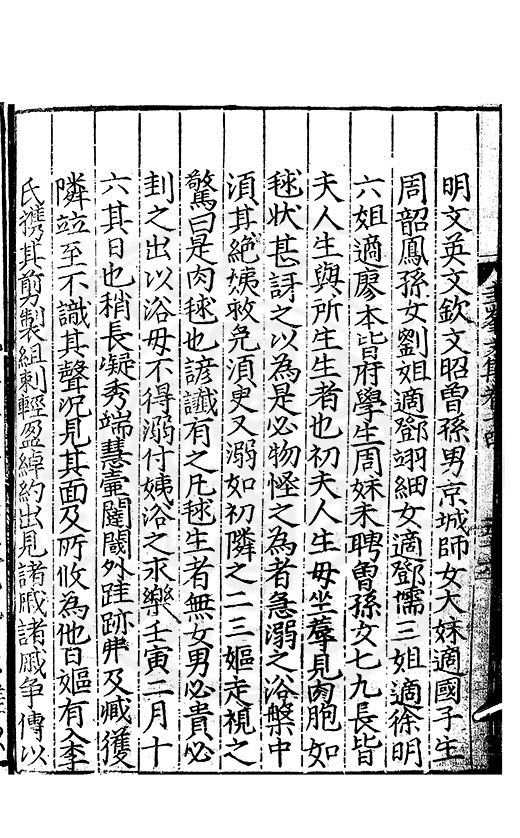 明文英文欽文昭曽孫男京城師女大妹適國子生
周韶鳳孫女劉姐適鄧翊細女適鄧儒三姐適徐明
六姐適廖本皆府學生周妹未聘曽孫女七九長皆
夫人生與所生生者也初夫人生毋坐蓐見肉胞如
毬狀甚訝之以為是必物怪之為者急溺之浴盤中
湏其絕姨救免湏臾又溺如初隣之二三嫗走視之
驚曰是肉毬也諺讖有之凡毬生者無女男必貴必
刲之出以浴毋不得溺付姨浴之永樂壬寅二月十
六其日也稍長凝秀端慧壼闈閾外跬跡弗及臧獲
隣竝至不識其聲況見其面及所收為他日嫗有入李
氏携其剪製組刺輕盈綽約出見諸戚諸戚争傳以